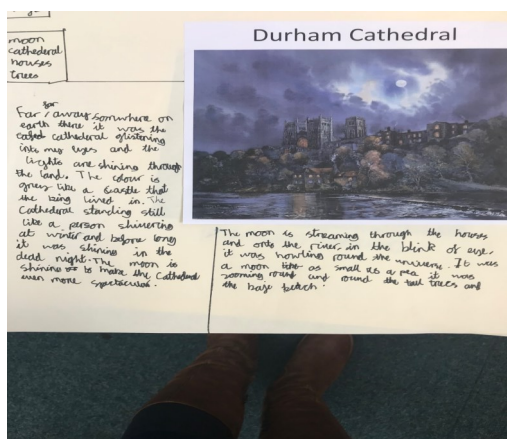 Durham Cathedral
moon
cathederal
houses
trees
far
Far / away somwhere on
earth there it was the
cathederal glistening
into my eyes and the
lights are shining through
the land. The colour is
grey like a castle that
the king lived in. The
Cathederal standing still
like a person shivering
at winter and before long
it was shining in the
dead night. The moon is
shining to make the Cathederal
even more spectacular.
The moon is streaming through the houses
and onto the river in the blink of eye.
it was howling round the universe. It was
a moon as small as a pea it was
zooming round and round the tall trees and
the base